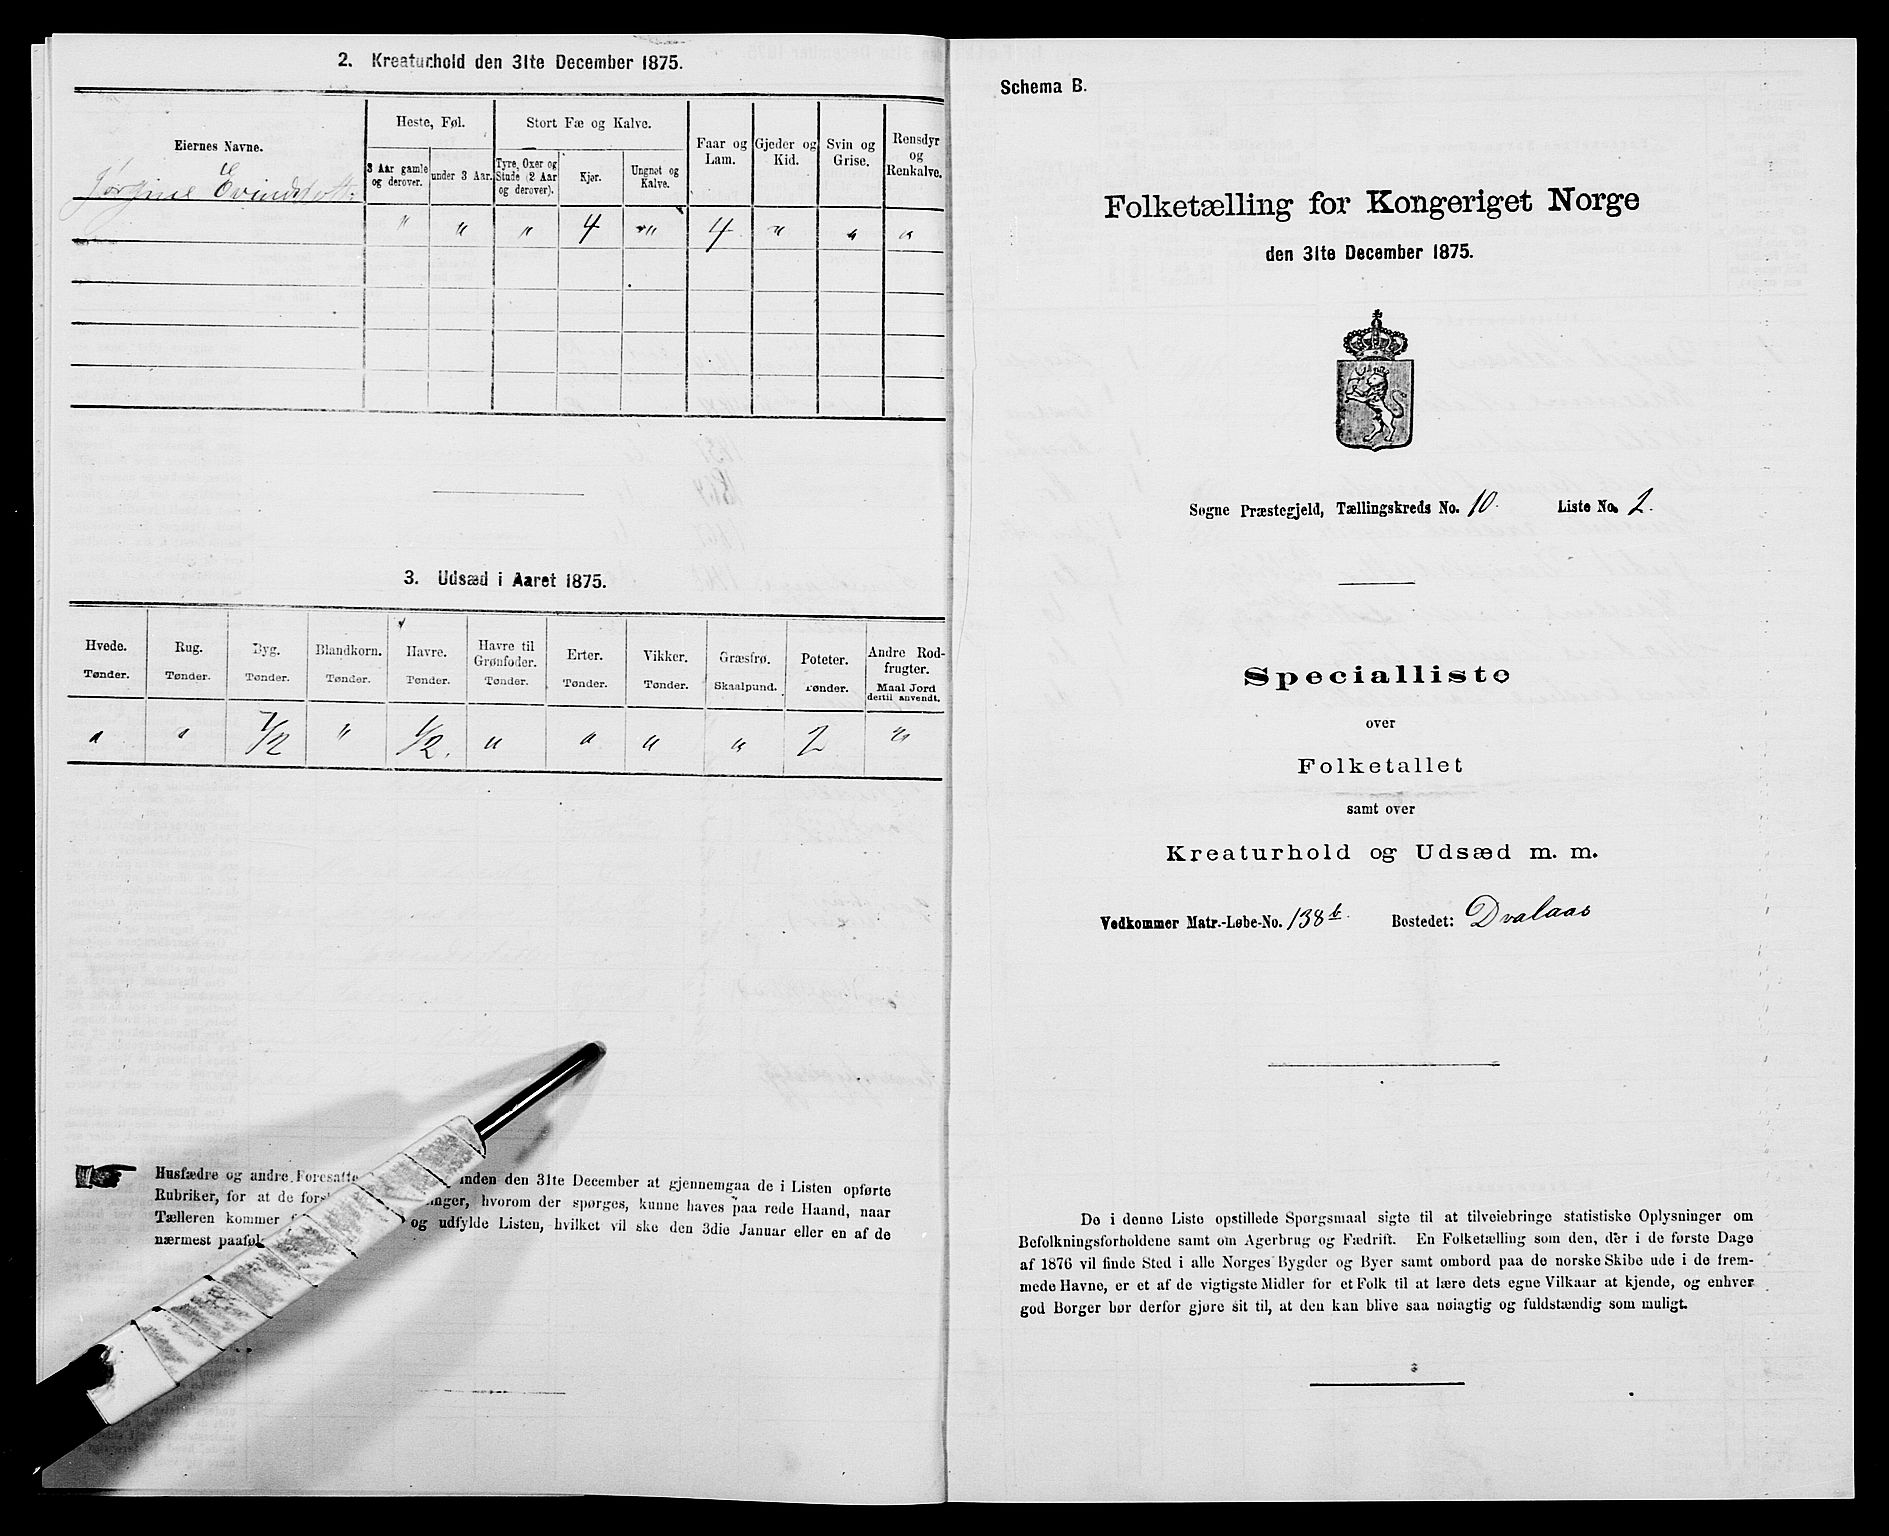 2. Kreaturhold den 31te December 1875.
Eiernes Navne.
Heste, Føl.
Stort Fæ og Kalve.
Faar og Lam.
Gjeder og Kid.
Svin og Grise.
Rensdyr og Renkalve.
3 Aar gamle og derover.
under 3 Aar.
Tyre, Oxer og Stude (2 Aar og derover).
Kjør.
Ungnøt og Kalve.
Jørgine Evindsdatt.
" " " 4 " 4 " " "
3. Udsæd i Aaret 1875.
Hvede. Rug. Byg. Blandkorn. Havre. Havre til Grønfoder. Erter. Vikker. Græsfrø. Poteter. Andre Rodfrugter.
Tønder. Tønder. Tønder. Tønder. Tønder. Tønder. Tønder. Tønder. Skaalpund. Tønder. Maal Jord dertil anvendt.
" " 1/2 " 1/2. " " " " 2 "
Husfædre og andre Foresatte inden den 31te December at gjennemgaa de i Listen opførte
Rubriker, for at de hvorom der spørges, kunne haves paa rede Haand, naar
Tælleren kommer og udfylde Listen, hvilket vil ske den 3die Januar eller en af de
nærmest
Schema B.
Folketælling for Kongeriget Norge
den 31te December 1875.
Søgne Præstegjeld, Tællingskreds No. 10. Liste No. 2.
Specialliste
over
Folketallet
samt over
Kreaturhold og Udsæd m. m.
Vedkommer Matr.-Løbe-No. 138b. Bostedet: Dvalaas
De i denne Liste opstillede Spørgsmaal sigte til at tilveiebringe statistiske Oplysninger om
Befolkningsforholdene samt om Agerbrug og Fædrift. En Folketælling som den, der i de første Dage
af 1876 vil finde Sted i alle Norges Bygder og Byer samt ombord paa de norske Skibe ude i de frem-
mede Havne, er et af de vigtigste Midler for et Folk til at lære dets egne Vilkaar at kjende, og enhver
god Borger bør derfor gjøre sit til, at den kan blive saa nøiagtig og fuldstændig som muligt.